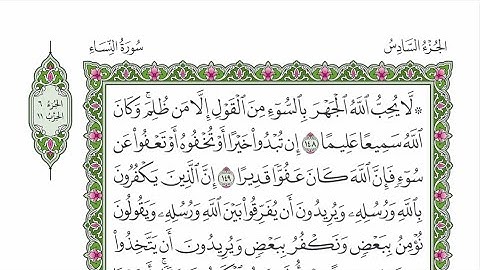 الجزء السادس
سورة النساء
الجزء ٦
الحزب ١١
۞ لَّا يُحِبُّ ٱللَّهُ ٱلْجَهْرَ بِٱلسُّوٓءِ مِنَ ٱلْقَوْلِ إِلَّا مَن ظُلِمَ ۚ وَكَانَ
ٱللَّهُ سَمِيعًا عَلِيمًا ١٤٨ إِن تُبْدُوا۟ خَيْرًا أَوْ تُخْفُوهُ أَوْ تَعْفُوا۟ عَن
سُوٓءٍ فَإِنَّ ٱللَّهَ كَانَ عَفُوًّا قَدِيرًا ١٤٩ إِنَّ ٱلَّذِينَ يَكْفُرُونَ
بِٱللَّهِ وَرُسُلِهِۦ وَيُرِيدُونَ أَن يُفَرِّقُوا۟ بَيْنَ ٱللَّهِ وَرُسُلِهِۦ وَيَقُولُونَ
نُؤْمِنُ بِبَعْضٍ وَنَكْفُرُ بِبَعْضٍ وَيُرِيدُونَ أَن يَتَّخِذُوا۟